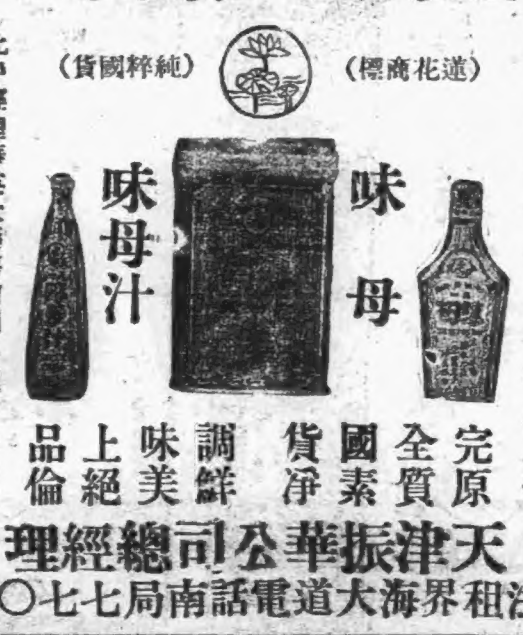 (蓮花商標)
(純粹國貨)
味母
味母汁
完全國貨 調味上品
原質素淨 鮮美絕倫
天津振華公司總經理
租界海大道電話南局七七〇